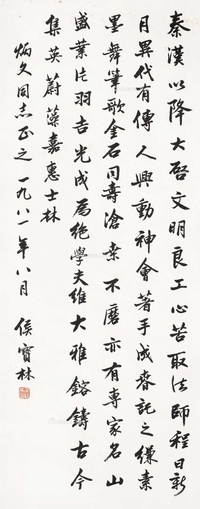 秦漢以降大啓文明良工心苦取法師程日新
月異代有傳人興動神會著手成春託之縑素
墨舞筆歌金石同壽滄桑不磨亦有專家名山
盛業片羽吉光成爲絕學夫維大雅鎔鑄古今
集英蔚藻嘉惠士林
炳文同志正之 一九八一年八月 侯寶林